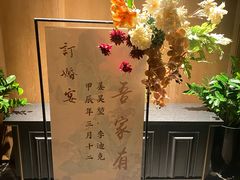 吾家有
姜昊堃 李迪克
甲辰年三月十二
訂婚宴